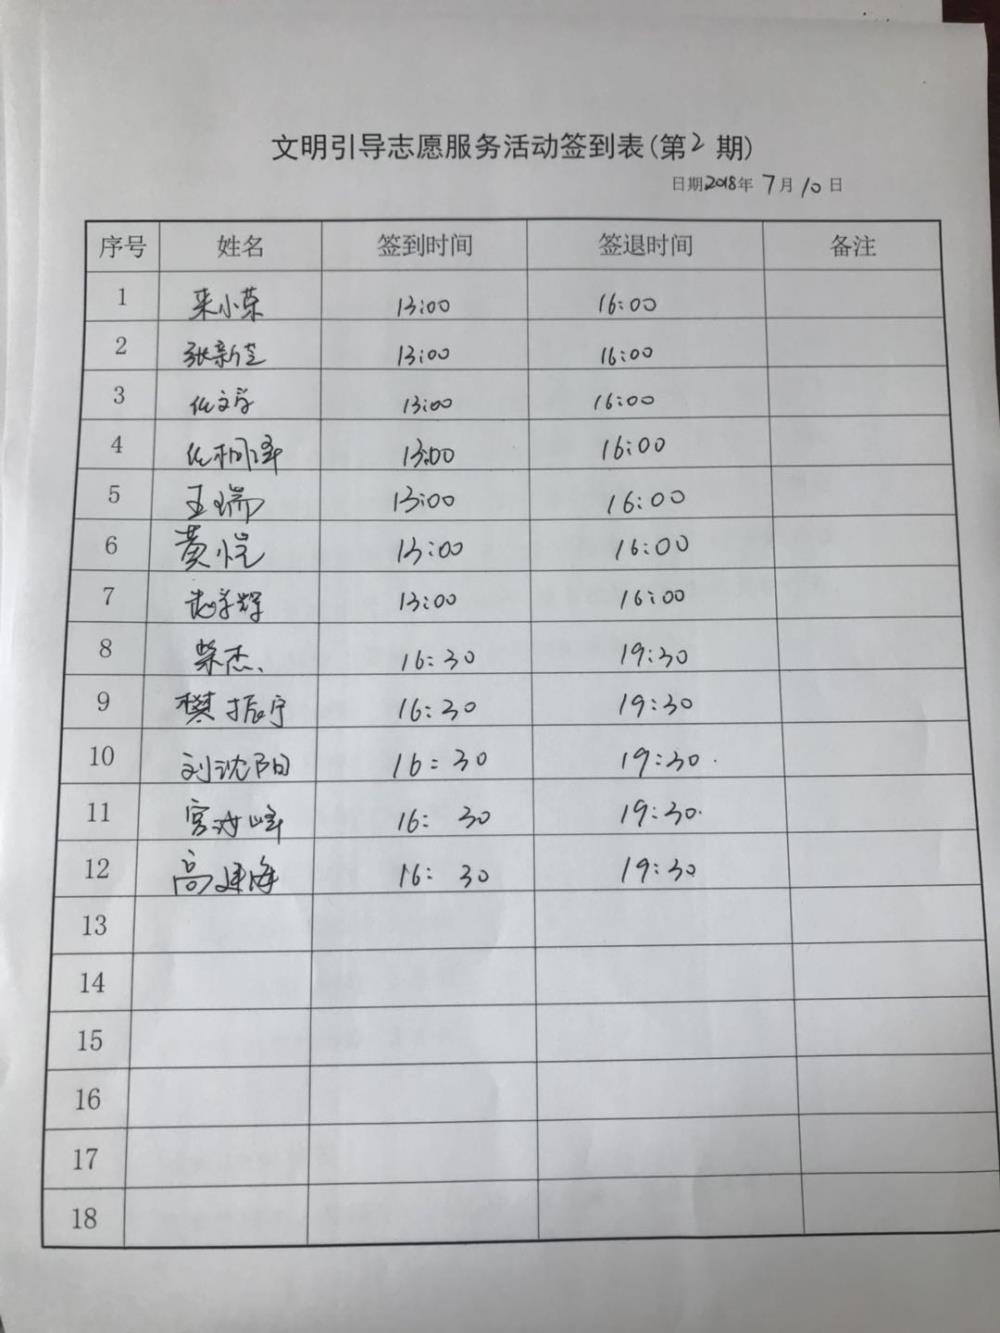 文明引导志愿服务活动签到表(第2期)
日期2018年7月10日
序号 姓名 签到时间 签退时间 备注
1 来小荣 13:00 16:00
2 张新 13:00 16:00
3 13:00 16:00
4 13:00 16:00
5 王瑞 13:00 16:00
6 黄恺 13:00 16:00
7 13:00 16:00
8 荣杰 16:30 19:30
9 樊振宁 16:30 19:30
10 刘沈阳 16:30 19:30
11 宫 峰 16:30 19:30
12 高建海 16:30 19:30
13
14
15
16
17
18